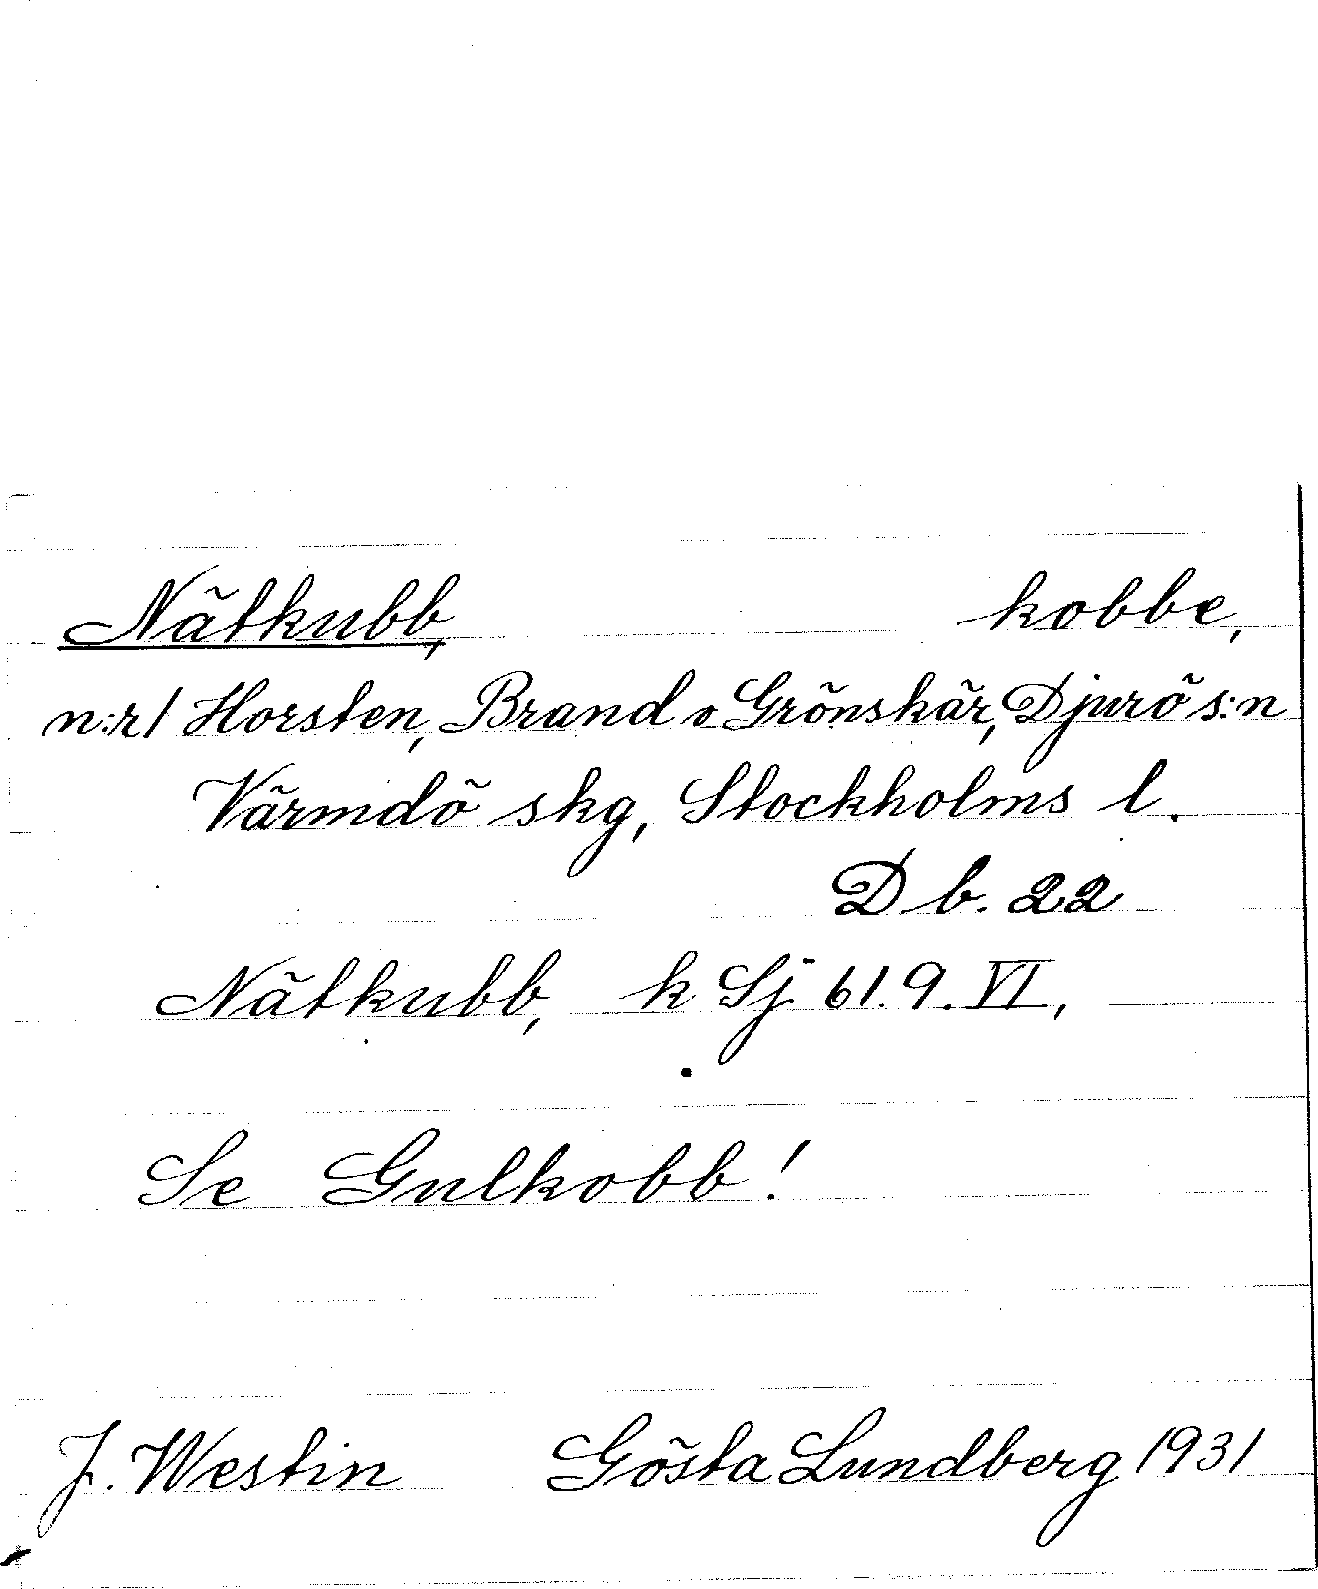 Nätkubb, kobbe,
n:r 1 Horsten, Brand o Grönskär, Djurö s:n
Värmdö skg, Stockholms l.
D b. 22
Nätkubb, k Sj 61.9.VI,
Se Gulkobb!
J. Westin Gösta Lundberg 1931